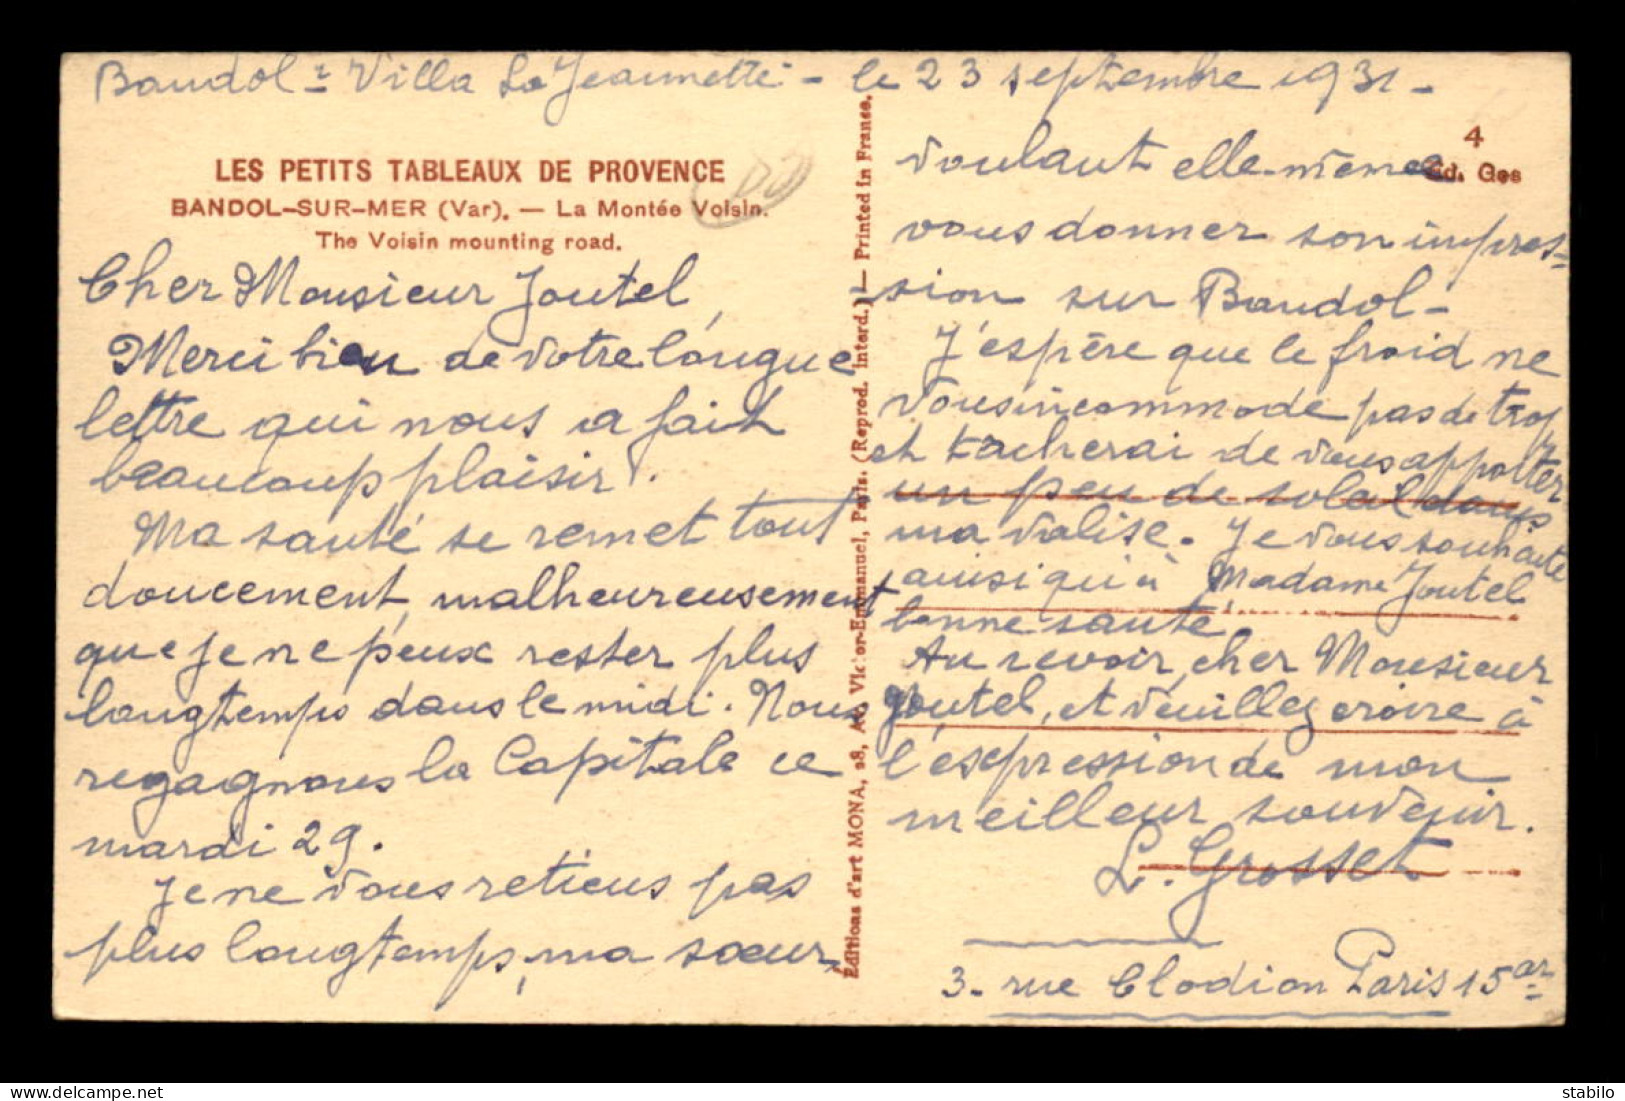 Bandol - Villa La Jeannette - le 23 septembre 1931 -
LES PETITS TABLEAUX DE PROVENCE
BANDOL-SUR-MER (Var). — La Montée Voisin.
The Voisin mounting road.
Cher Monsieur Joutel,
Merci bien de votre longue
lettre qui nous a fait
beaucoup plaisir.
Ma santé se remet tout
doucement, malheureusement
que je ne peux rester plus
longtemps dans le midi. Nous
regagnons la Capitale ce
mardi 29.
Je ne vous retiens pas
plus longtemps, ma sœur
Editions d'art MONA, 28, Av. Victor-Emmanuel, Paris. (Reprod. Interd.) — Printed in France.
4
Ed. Ges
voulant elle-même
vous donner son impres-
sion sur Bandol -
J'espère que le froid ne
vous incommode pas de trop
et tacherai de vous apporter
un peu de soleil dans
ma valise. Je vous souhaite
ainsi qu'à Madame Joutel
bonne santé.
Au revoir, cher Monsieur
Joutel, et veuillez croire à
l'expression de mon
meilleur souvenir.
L. Grosset
3. rue Clodion Paris 15ar
stabilo